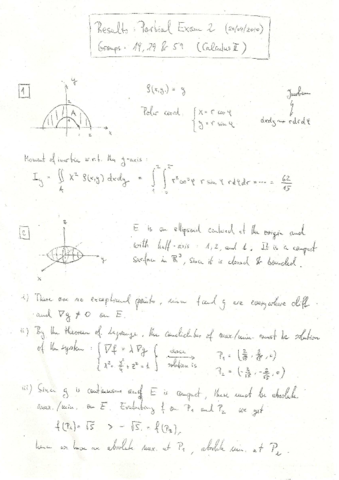 Results - Partial Exam 2
Groups - 14, 24 & 59 (Calculus II)
1
y
A
x
ρ(x,y) = y
Polar coord. { x = r cos φ
y = r sin φ
dxdy → r dr dφ
Moment of inertia w.r.t. the y-axis:
I_y = ∬_A x² ρ(x,y) dxdy = ∫∫ r² cos²φ r sin φ r dr dφ = ... = 62/15
2
E is an ellipsoid centered at the origin and
with half-axis 1, 2, and 1. It is a compact
surface in ℝ³, since it is closed & bounded.
i) There are no exceptional points, since f and g are everywhere diff.
and ∇g ≠ 0 on E.
ii) By the theorem of Lagrange, the candidates of max/min must be solution
of the system: { ∇f = λ∇g
solution is
iii) Since f is continuous and E is compact, there must be absolute
max./min. on E. Evaluating f on P₁ and P₂ we get
f(P₁) = √5 > -√5 = f(P₂),
hence we have an absolute max. at P₁, absolute min. at P₂.